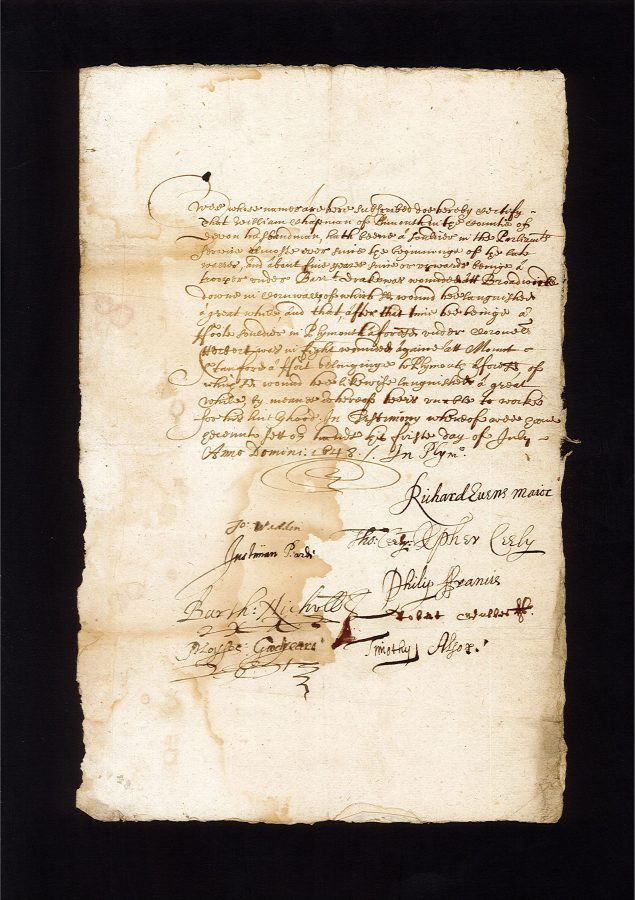 wee whose names are here subscribed doe hereby certefy
that William Chapman of in the Countie of
devon husbandman hath beene a souldier in the Parliamts
service almoste ever since the beginninge of the late
warrs, and about five yeares since or upwards beinge a
trooper under Bart: Drake was wounded att Broadoucke
downe in Cornwall, of which sd wound hee languished
a great while, and that after that time hee beinge a
ffoote souldier in Plymouth under Coronell
was in fight wounded againe att Mount
Stanford a ffort belonginge to Plymoth, of
which wound hee likewise languished a great
while, by meanes whereof hee is unable to worke
for his livelihood. In Testimony whereof wee have
sett our hands the firste day of July
Anno Domini: 1648 /. In Plymo.
Richard Evens maior
Jo: Tho: Ceely Xpher Ceely
Justinian
Philip ffrancis
Barth: Nicholls
Moyse Timothy Alsop.